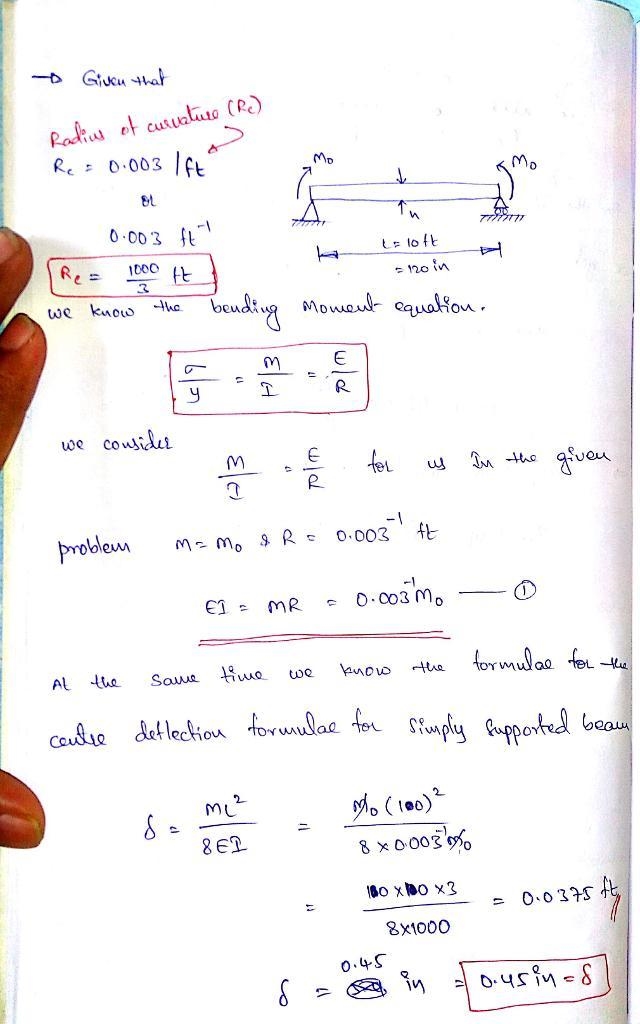 → Given that
Radius of curvature (Rc)
Rc = 0.003 /ft
or
0.003 ft⁻¹
Rc = 1000/3 ft
Mo Mo
h
L = 10 ft
= 120 in
we know the bending Moment equation.
σ/y = M/I = E/R
we consider
M/I = E/R for us In the given
problem M = Mo & R = 0.003⁻¹ ft
EI = MR = 0.003⁻¹Mo — ①
At the same time we know the formulae for the
centre deflection formulae for Simply Supported beam
δ = ML²/8EI = Mo (100)²/8 x 0.003⁻¹Mo
= 100 x 100 x 3/8x1000 = 0.0375 ft
δ = 0.45 in = 0.45 in = δ